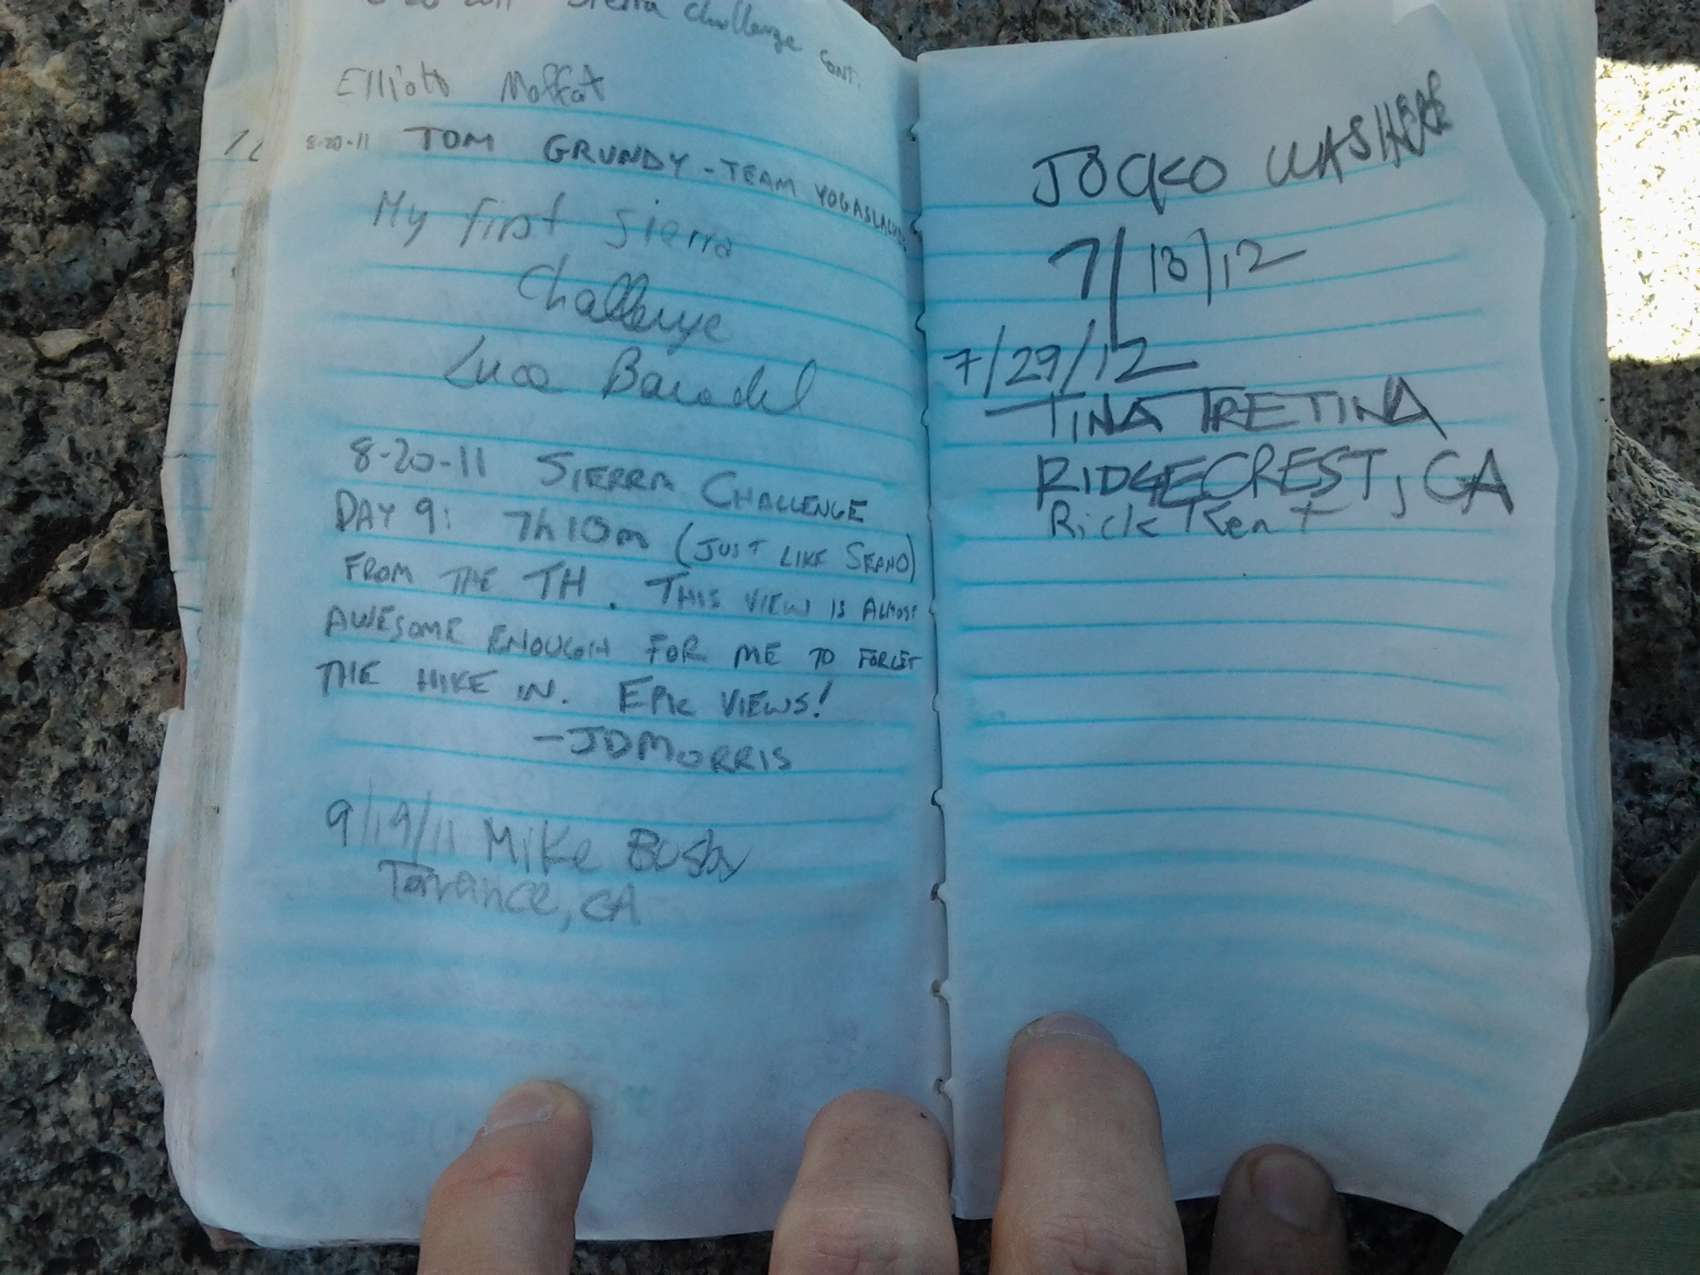 8-20-2011 Sierra Challenge cont.
Elliott Moffat
8-20-11 TOM GRUNDY - TEAM YOGASLACKERS
My first Sierra
Challenge
Luca
8-20-11 SIERRA CHALLENGE
DAY 9: 7h 10m (JUST LIKE SEANO)
FROM THE TH. THIS VIEW IS ALMOST
AWESOME ENOUGH FOR ME TO FORGET
THE HIKE IN. EPIC VIEWS!
-JDMORRIS
9/19/11 Mike Busby
Torrance, CA
JOCKO WAS HERE
7/13/12
7/29/12
TINA TRETINA
RIDGECREST, CA
Rick Kent